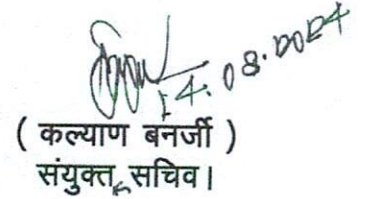 14.08.2024
( कल्याण बनर्जी )
संयुक्त सचिव।